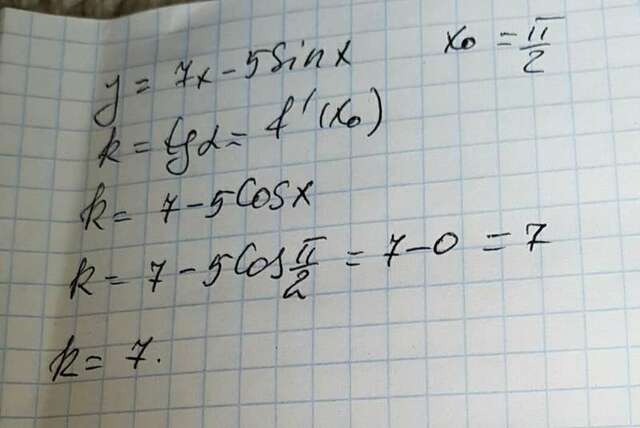 y = 7x - 5sinx x₀ = π/2
k = tgα = f'(x₀)
k = 7 - 5cosx
k = 7 - 5cos π/2 = 7 - 0 = 7
k = 7.